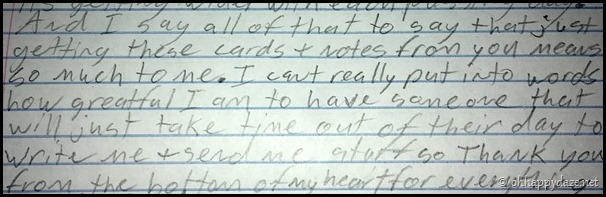 its getting with each passing day.
And I say all of that to say that just
getting these cards + notes from you means
so much to me. I cant really put into words
how greatful I am to have someone that
will just take time out of their day to
write me + send me stuff so Thank you
from the bottom of my heart for everything
© ohhappydaze.net